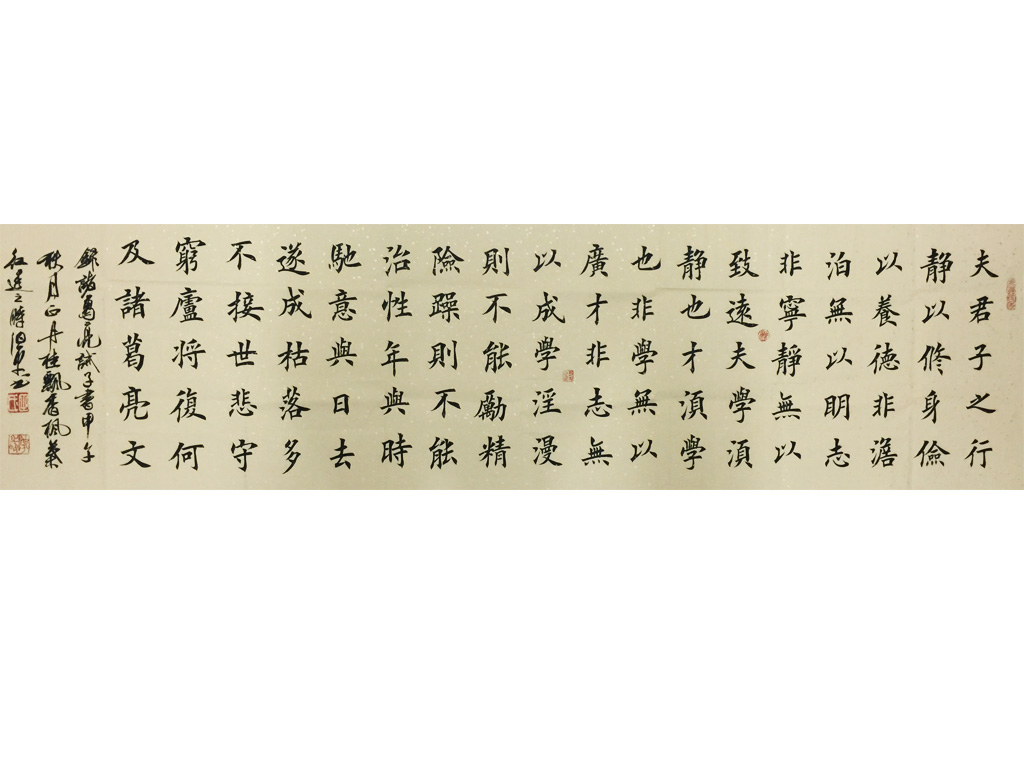 夫君子之行
静以修身儉
以養德非澹
泊無以明志
非寧靜無以
致遠夫學湏
静也才湏學
也非學無以
廣才非志無
以成學淫漫
則不能勵精
險躁則不能
治性年與時
馳意與日去
遂成枯落多
不接世悲守
窮廬将復何
及諸葛亮文
錄諸葛亮誡子書甲午
秋月正丹桂飄香楓葉
红透之時